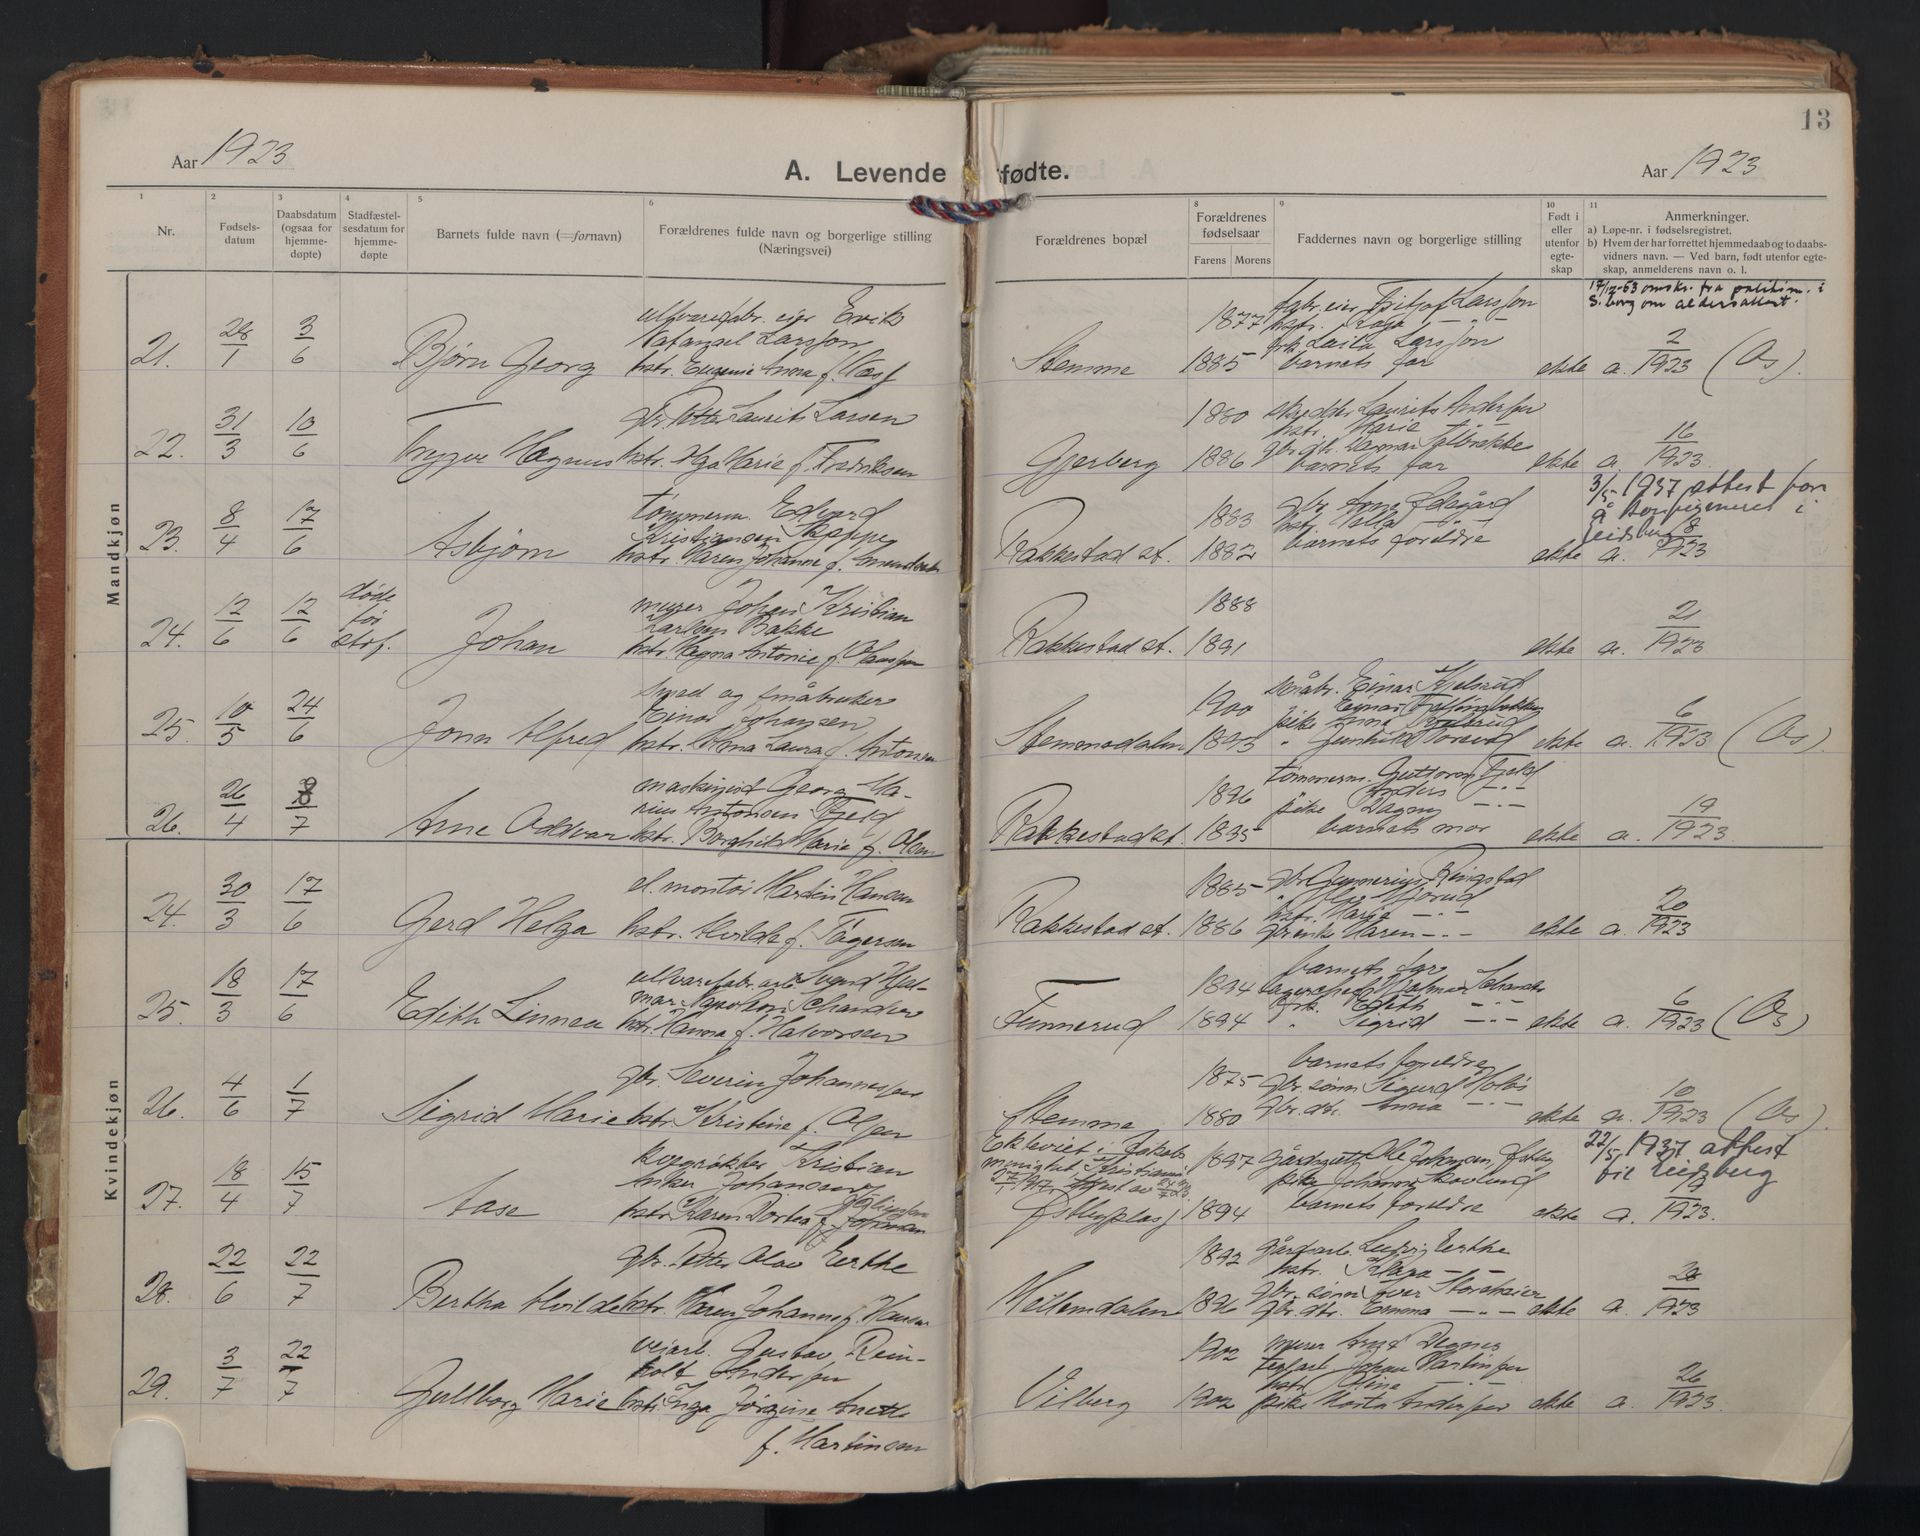 13
Aar 1923
A. Levende fødte.
Aar 1923
1 2 3 4 5 6 8 9 10 11
Nr.
Fødsels-
datum
Daabsdatum
(ogsaa for
hjemme-
døpte)
Stadfæstel-
sesdatum for
hjemme-
døpte
Barnets fulde navn (=fornavn)
Forældrenes fulde navn og borgerlige stilling
(Næringsvei)
Forældrenes bopæl
Forældrenes
fødselsaar
Farens Morens
Faddernes navn og borgerlige stilling
Født i
eller
utenfor
egte-
skap
Anmerkninger.
a) Løpe-nr. i fødselsregistret.
b) Hvem der har forrettet hjemmedaab og to daabs-
vidners navn. — Ved barn, født utenfor egte-
skap, anmelderens navn o. l.
Mandkjøn
21. 28/1 3/6 Bjørn Georg
ullvarefabr. eier Erik
Natanael Larsson
hstr. Eugenie Anna f.
Stemme 1877 1885
fabr. eier Fritjof Larsson
hstr.
frk. Laila Larsson
barnets far
ekte a. 2/1923 (Os).
17/12-63 omskr. fra politikm. i
S.borg om aldersattest.
22. 31/3 10/6 Trygve Magnus
gbr. Petter Laurits Larsen
hstr. Olga Marie f. Fredriksen
Gjerberg 1880 1886
skredder Laurits Andersen
hstr. Marie
barnets far
ekte a. 16/1923.
23. 8/4 17/6 Asbjørn
tømmerm. Edvard
Kristiansen
hstr. Maren Johanne f.
Rakkestad st. 1883 1882
gbr. Arne Ødegård
hstr.
barnets foreldre
ekte a. 8/1923
3/5 1937 attest for
å konfirmeres i
Eidsberg
24. 12/6 12/6 døde
før
stdf.
Johan
murer Johan Kristian
Karlsen Bakke
hstr. Magna Antonie f. Hanssen
Rakkestad st. 1888 1891
ekte a. 21/1923
25. 10/5 24/6 John Alfred
smed og småbruker
Einar Johansen
hstr. Anna Laura f. Antonsen
Stemmedalen 1900 1893
småbr. Einar Kjelsrud
Einar
pike Anna
ekte a. 6/1923 (Os).
26. 26/4 8/7 Arne Oddvar
maskinist Georg Ma-
rius Antonsen Fjeld
hstr. Borghild Marie f. Olsen
Rakkestad st. 1896 1895
tømmerm. Guttorm Fjeld
Anders —"—
pike Dagny —"—
barnets mor
ekte a. 19/1923.
Kvindekjøn
24. 30/3 17/6 Gerd Helga
el. montør Martin Hansen
hstr. Alvilde f. Fagersen
Rakkestad st. 1885 1886
gbr. Gunnerius Ringstad
hstr. Marie —"—
gbr.enke Maren —"—
ekte a. 20/1923
25. 18/3 17/6 Edith Linnea
ullvarefabr. arb. Sigurd Hjal-
mar Napoleon Schander
hstr. Hanna f. Halvorsen
Finnerud 1894 1894
barnets far
lagerchef Hjalmar Schander
frk. Edith —"—
" Sigrid —"—
ekte a. 6/1923 (Os)
26. 4/6 1/7 Sigrid Marie
gbr. Severin Johannessen
hstr. Kristine f. Olsen
Stemme 1875 1880
barnets foreldre
gbr. sønn Sigurd Holøs
gbr. dtr. Anna —"—
ekte a. 10/1923 (Os).
27. 18/4 15/7 Aase
Kristian
Anker Johansen
hstr. Karen Dortea f.
Ekteviet i Jakobs
menighet Kristiania
Østbyplass 1897 1894
Ole Johansen, Østby
pike Johanne
barnets foreldre
ekte a. 1923.
22/5 1937 attest
til Eidsberg
28. 22/6 22/7 Bertha Alvilde
gbr. Petter Olav Eerthe
hstr. Maren Johanne f. Hansen
Mellemdalen 1892 1896
gårdsarb. Ludvig Eerthe
hstr. Klara —"—
gbr. sønn Iver Storeheier
gbr. dtr. Emma —"—
ekte a. 28/1923
29. 3/7 22/7 Gullborg Marie
veiarb. Gustav Rein-
holt Andersen
hstr. Inga Jørgine Anette
f. Martinsen
Vilberg 1902 1902
murer Arnt Degnes
teglarb. Johan Martinsen
hstr. Oline —"—
pike Marta Andersen
ekte a. 26/1923.